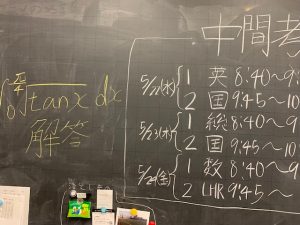 ∫₀^{π/4} √tanx dx
解答
中間考
5/22(水) { 1 英 8:40〜9
2 国 9:45〜10
5/23(木) { 1 総 8:40〜9
2 国 9:45〜10
5/24(金) { 1 数 8:40〜9
2 LHR 9:45〜